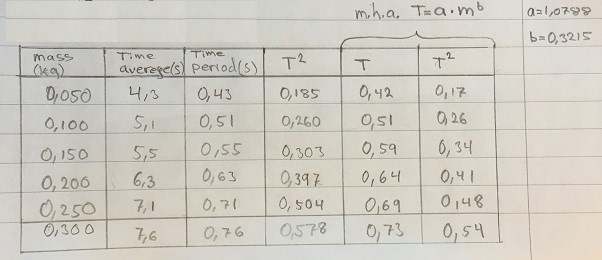 m.h.a. T=a·m^b a=1,0788
b=0,3215
mass (kg) Time averege(s) Time period(s) T² T T²
0,050 4,3 0,43 0,185 0,42 0,17
0,100 5,1 0,51 0,260 0,51 0,26
0,150 5,5 0,55 0,303 0,59 0,34
0,200 6,3 0,63 0,397 0,64 0,41
0,250 7,1 0,71 0,504 0,69 0,48
0,300 7,6 0,76 0,578 0,73 0,54